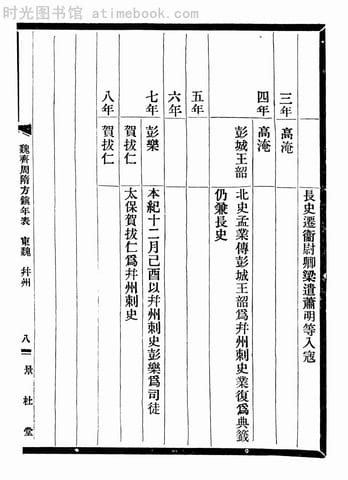 时光图书馆 - atimebook.com
長史遷衞尉卿梁遣蕭明等入寇
三年 高淹
四年 高淹
彭城王韶 北史孟業傳彭城王韶爲幷州刺史業復爲典籤
仍兼長史
五年
六年
七年 彭樂 本紀十二月己酉以幷州刺史彭樂爲司徒
賀拔仁 太保賀拔仁爲幷州刺史
八年 賀拔仁
魏齊周隋方鎮年表 東魏 幷州 八 景杜堂